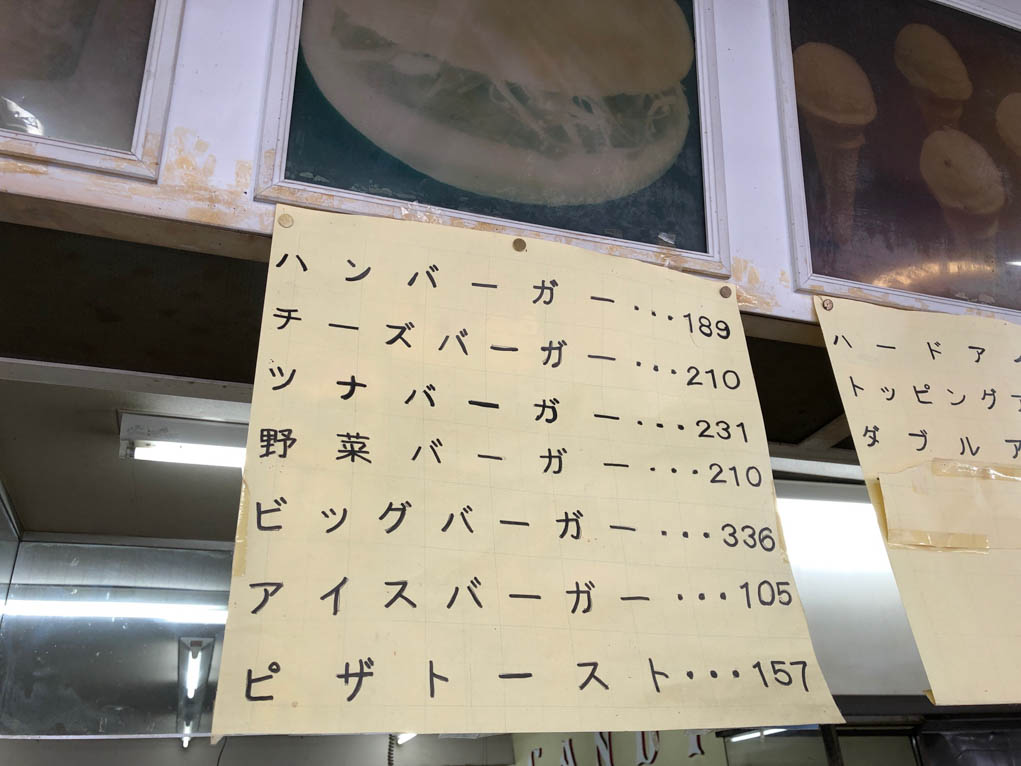 ハンバーガー...189
チーズバーガー...210
ツナバーガー...231
野菜バーガー...210
ビッグバーガー...336
アイスバーガー...105
ピザトースト...157
ハードアイ
トッピングア
ダブルア
CANDY